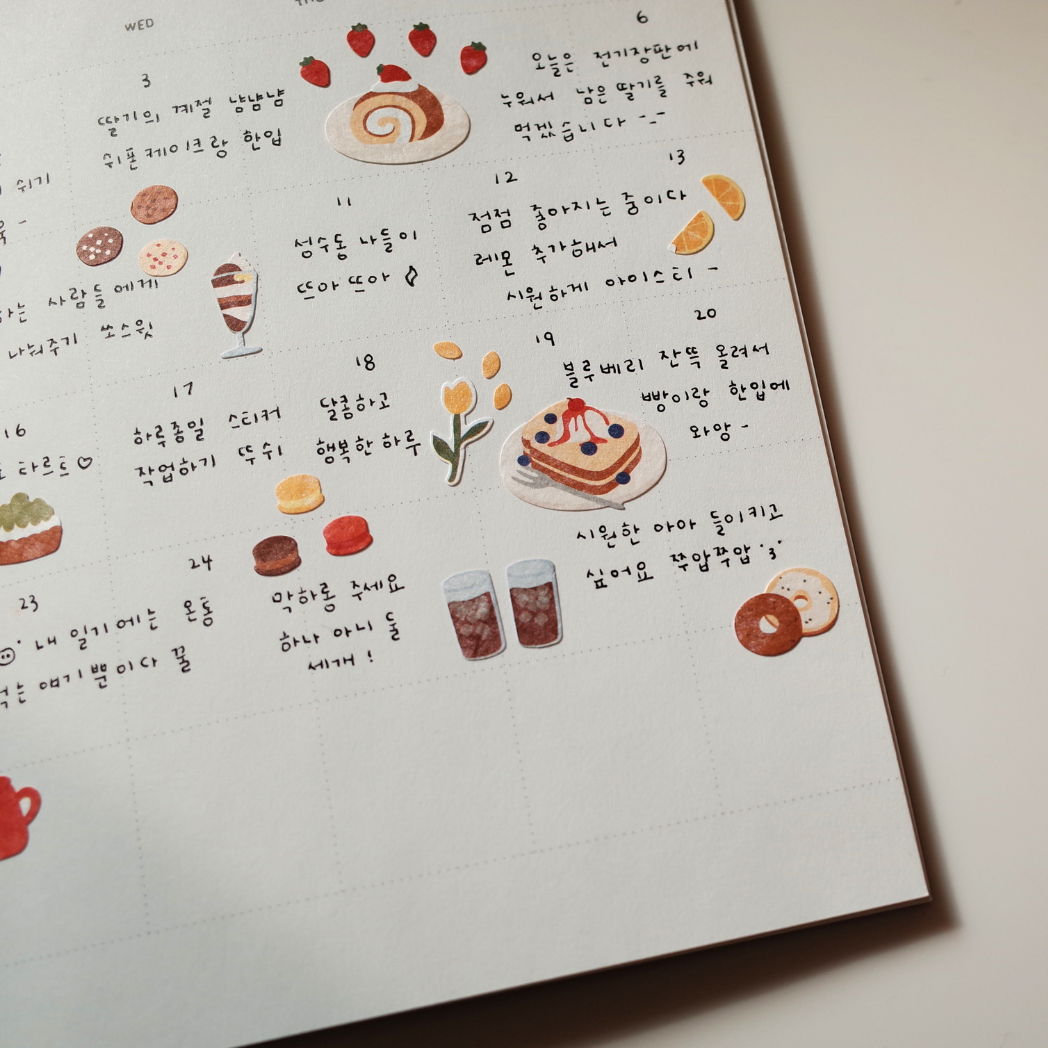 WED
3
딸기의 계절 냠냠냠
쉬폰케이크랑 한입
6
오늘은 전기장판에
누워서 남은 딸기를 주워
먹겠습니다 -_-
쉬기
사람들에게
나눠주기 쏘스윗
11
성수동 나들이
뜨아 뜨아
12
13
점점 좋아지는 중이다
레몬 추가해서
시원하게 아이스티 -
16
타르트♡
17
하루종일 스티커
작업하기 뚜쉬
18
달콤하고
행복한 하루
19
20
블루베리 잔뜩 올려서
빵이랑 한입에
와앙 -
23
내 일기에는 온통
먹는 얘기뿐이다 꿀
24
막하롱 주세요
하나 아니 둘
세개 !
시원한 아아 들이키고
싶어요 쭈압쭈압 '3'